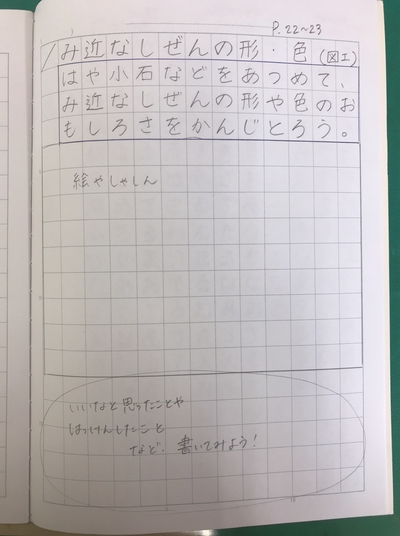 P.22~23
み近なしぜんの形・色(図工)
はや小石などをあつめて、
み近なしぜんの形や色のお
もしろさをかんじとろう。
絵やしゃしん
いいなと思ったことや
はっけんしたこと
など、書いてみよう!